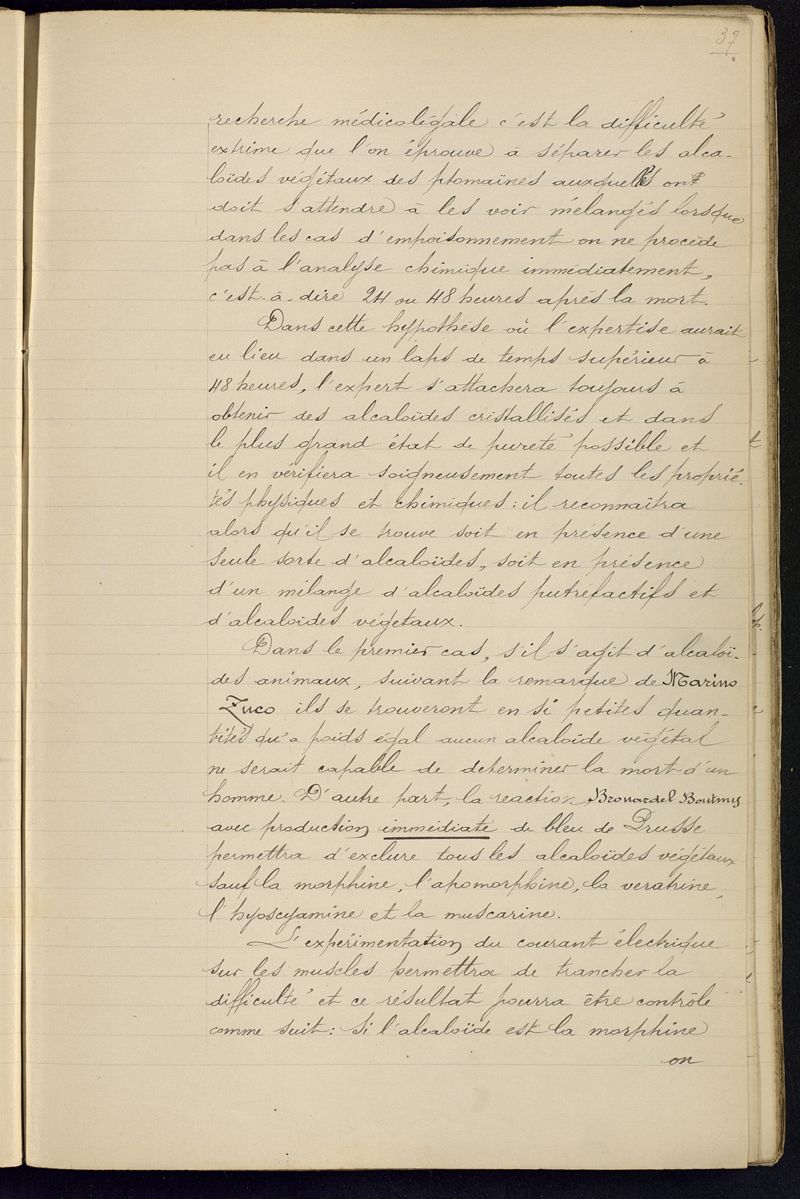 37
recherche médicolégale c'est la difficulté
extrime que l'on éprouve à séparer les alca-
loïdes végétaux des ptomaïnes auxquelles on
doit s'attendre à les voir mélangés lorsque
dans les cas d'empoisonnement on ne procède
pas à l'analyse chimique immédiatement,
c'est-à-dire 24 ou 48 heures après la mort.
Dans cette hypothèse où l'expertise aurait
eu lieu dans un laps de temps supérieur à
48 heures, l'expert s'attachera toujours à
obtenir des alcaloïdes cristallisés et dans
le plus grand état de pureté possible et
il en vérifiera soigneusement toutes les proprié-
tés physiques et chimiques: il reconnaîtra
alors qu'il se trouve soit en présence d'une
seule sorte d'alcaloïdes, soit en présence
d'un mélange d'alcaloïdes putréfactifs et
d'alcaloïdes végétaux.
Dans le premier cas, s'il s'agit d'alcaloï-
des animaux, suivant la remarque de Marino
Zuco ils se trouveront en si petites quan-
tités qu'a poids égal aucun alcaloïde végétal
ne serait capable de déterminer la mort d'un
homme. D'autre part, la réaction Brouardel Boutmy
avec production immédiate de bleu de Prusse
permettra d'exclure tous les alcaloïdes végétaux
sauf la morphine, l'apomorphine, la veratrine,
l'hyoscyamine et la muscarine.
L'expérimentation du courant électrique
sur les muscles permettra de trancher la
difficulté et ce résultat pourra être contrôlé
comme suit: si l'alcaloïde est la morphine
on